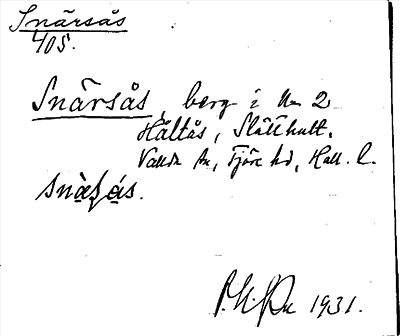 Snärsås
405.
Snärsås, berg i n. 2
Håltås, Slätthult.
Valda sn, Fjäre hd, Hall. l.
snä̀ʂå̀s.
1931.